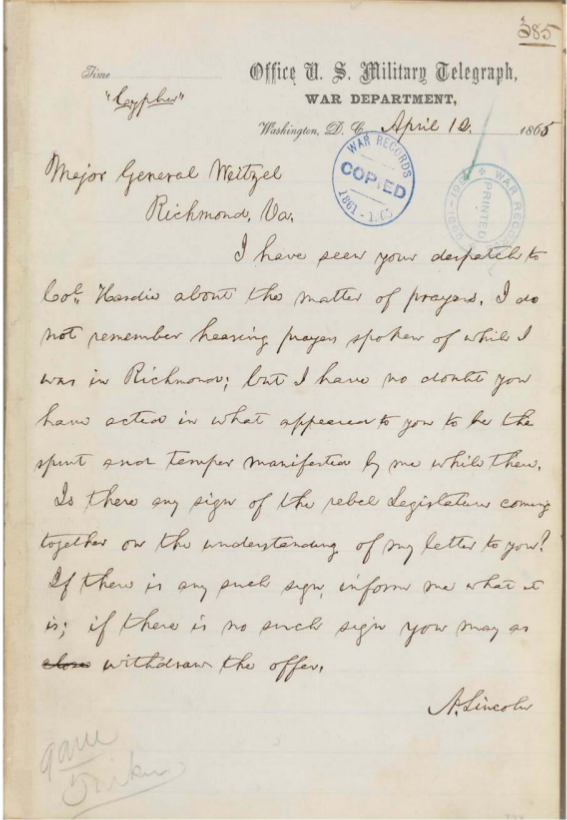 385
Time
Office U. S. Military Telegraph,
"Cypher"
WAR DEPARTMENT,
Washington, D. C. April 12. 1865
WAR RECORDS
COPIED
1861-
WAR RECORDS
PRINTED
Major General Weitzel
Richmond, Va.
I have seen your despatch to
Col. Hardie about the matter of prayers. I do
not remember hearing prayers spoken of while I
was in Richmond; but I have no doubt you
have acted in what appeared to you to be the
spirit and temper manifested by me while there.
Is there any sign of the rebel Legislature coming
together on the understanding of my letter to you?
If there is any such sign, inform me what it
is; if there is no such sign you may as
close withdraw the offer.
A. Lincoln